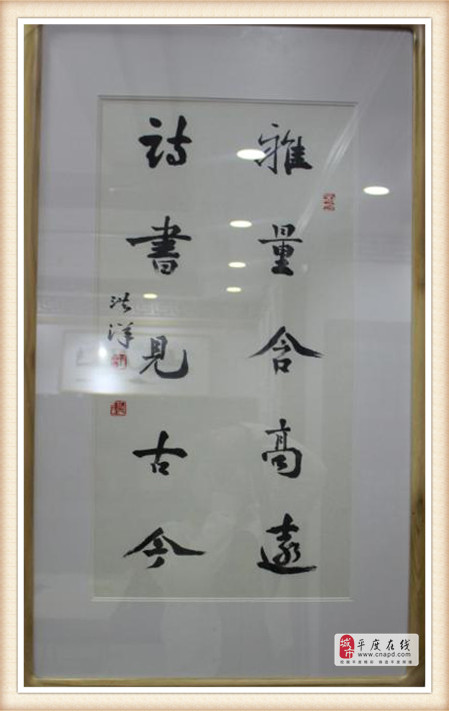 雅量含高遠
詩書見古今
洪洋
城市
平度在线
www.cnapd.com